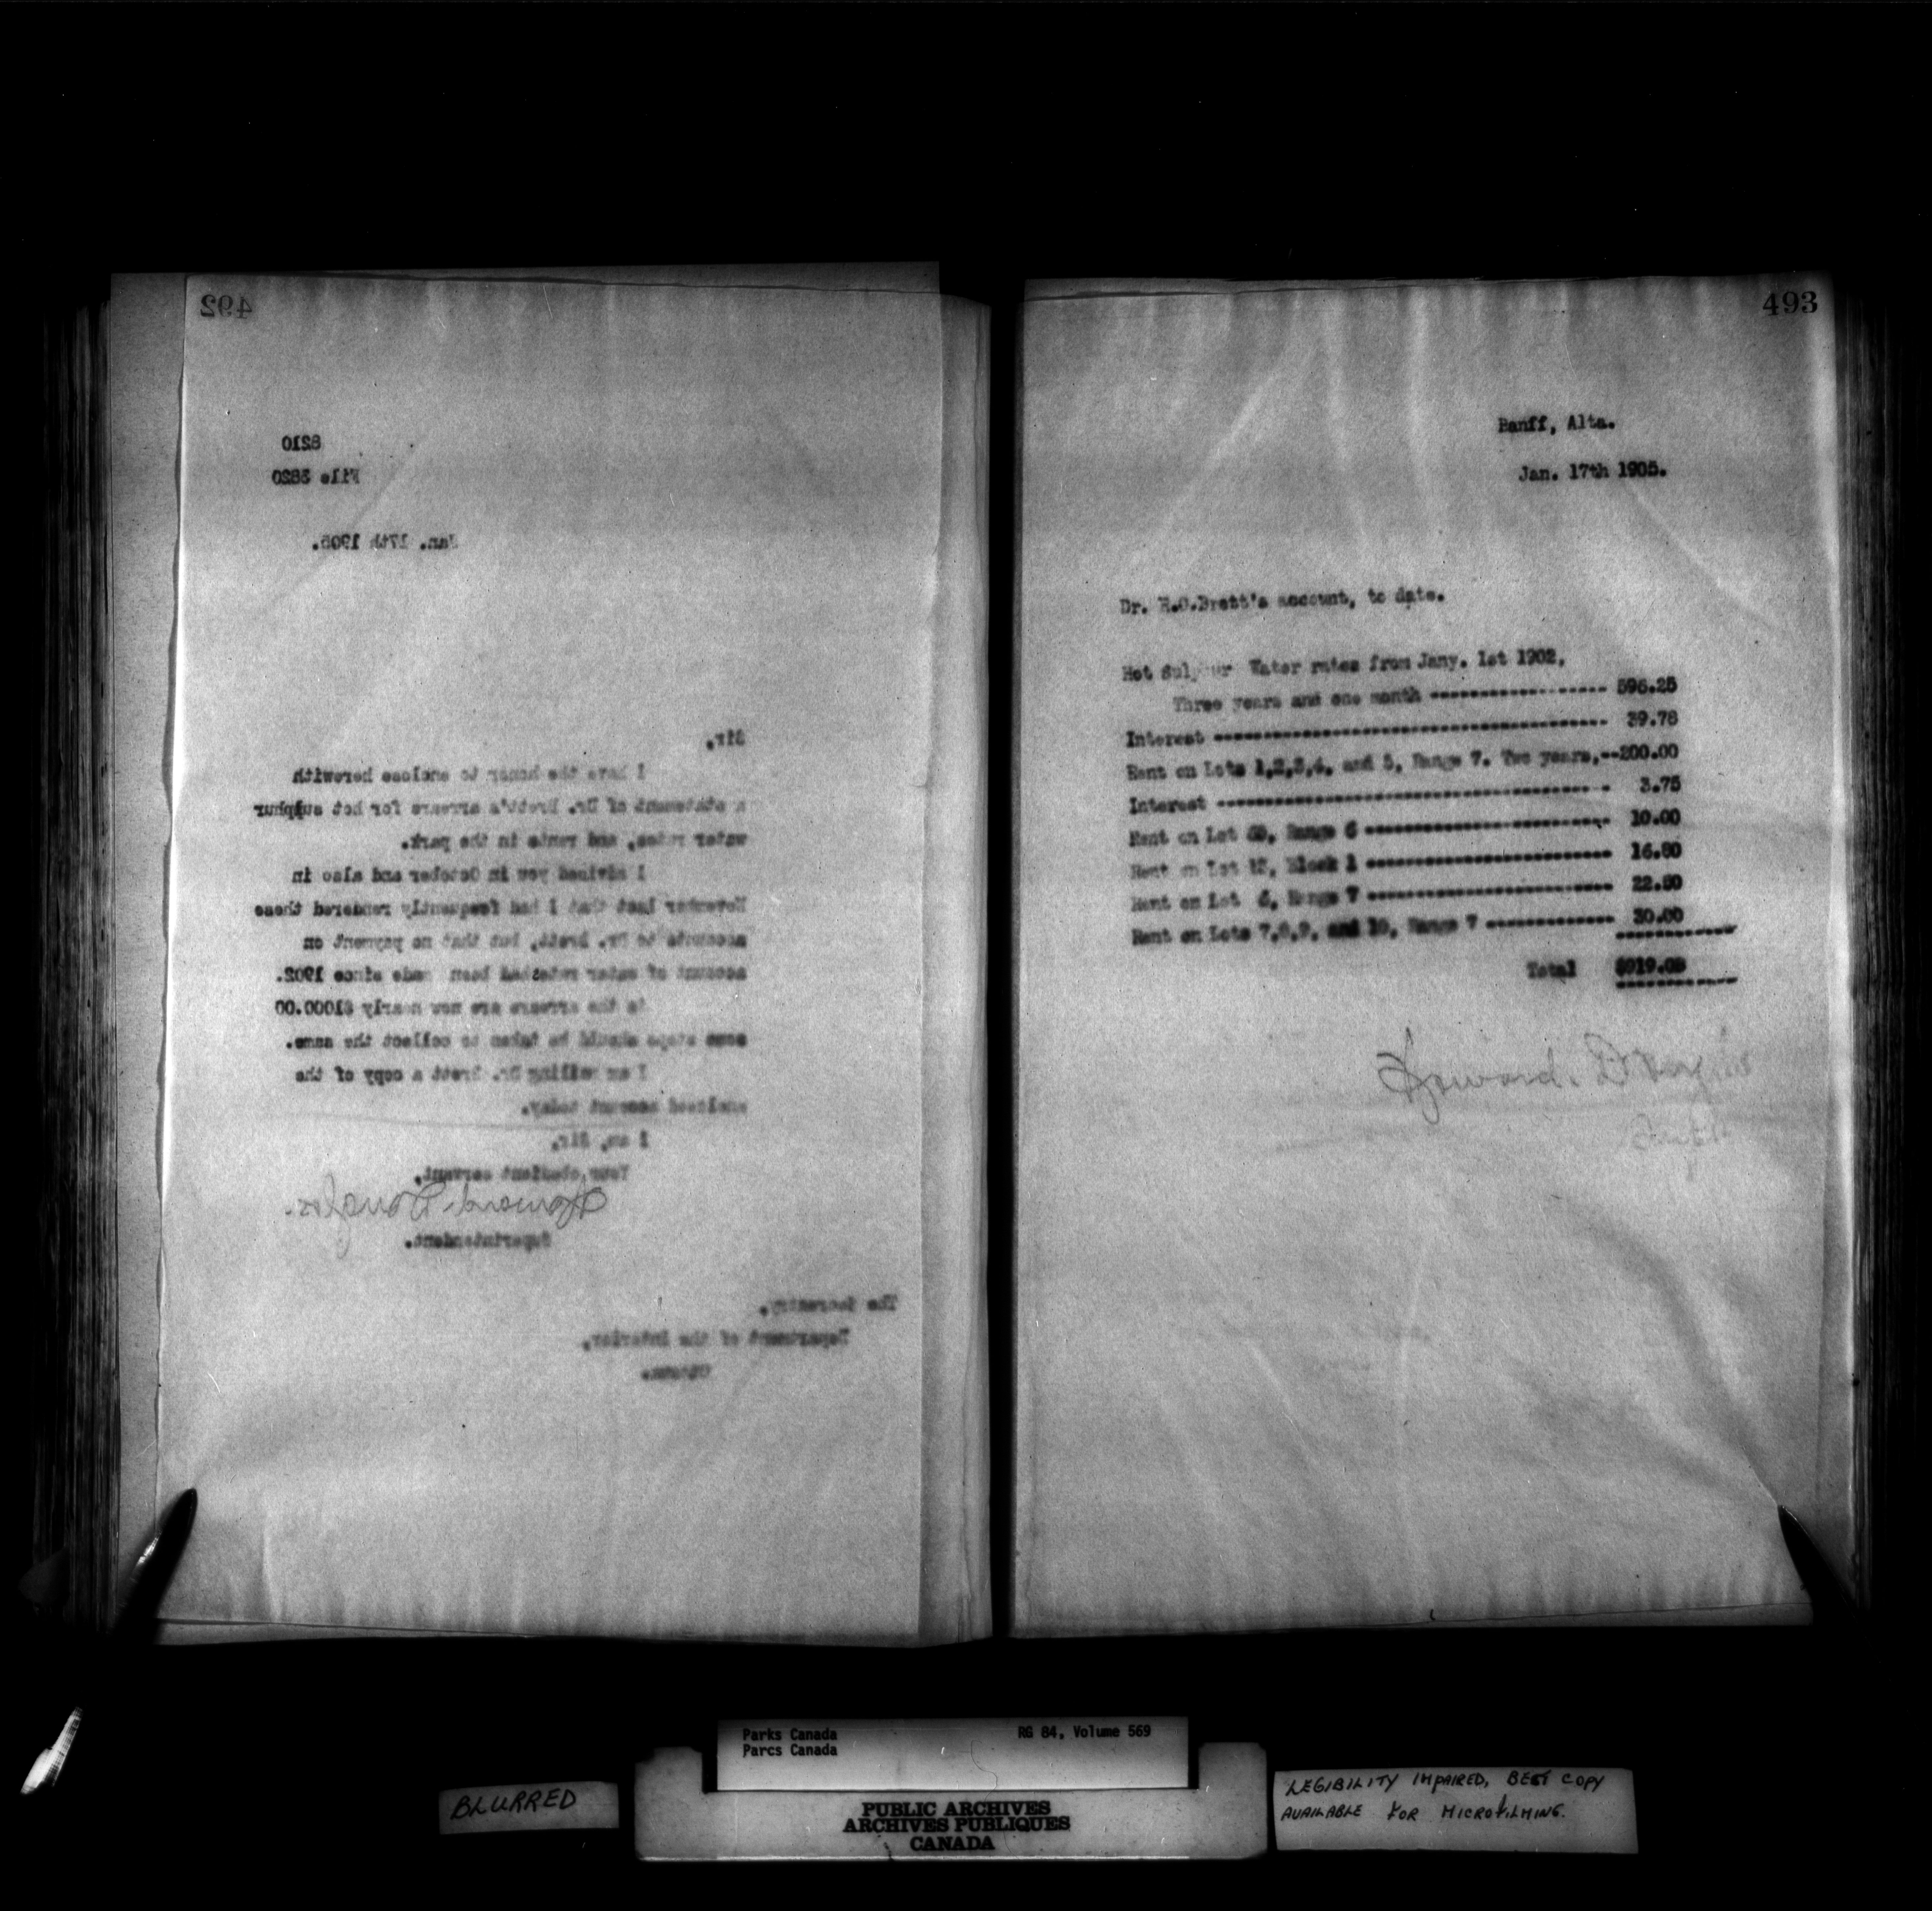 492
8210
File 3820
Jan. 17th 1905.
Sir,
I have the honor to enclose herewith
a statement of Dr. Brett's arrears for hot sulphur
water rates, and rents in the park.
I advised you in October and also in
November last that I had frequently rendered these
accounts to Dr. Brett, but that no payment on
account of water rates had been made since 1902.
As the arrears are now nearly $1000.00
some steps should be taken to collect the same.
I am mailing Dr. Brett a copy of the
enclosed account today.
I am, Sir,
Your obedient servant,
Howard Douglas.
Superintendent.
The Secretary,
Department of the Interior,
Ottawa.
493
Banff, Alta.
Jan. 17th 1905.
Dr. R.G.Brett's account, to date.
Hot Sulphur Water rates from Jany. 1st 1902,
Three years and one month ------------------ 596.25
Interest ---------------------------------------- 39.78
Rent on Lots 1,2,3,4, and 5, Range 7. Two years,--200.00
Interest ---------------------------------------- 3.75
Rent on Lot Range 6 ------------------------- 10.00
Rent on Lot Block 1 ------------------------- 16.80
Rent on Lot 6, Range 7 ------------------------- 22.50
Rent on Lots 7,8,9, and 10, Range 7 ------------- 30.00
Total $919.08
Howard. Douglas
Supt.
Parks Canada
Parcs Canada
RG 84, Volume 569
BLURRED
PUBLIC ARCHIVES
ARCHIVES PUBLIQUES
CANADA
LEGIBILITY IMPAIRED, BEST COPY
AVAILABLE FOR MICROFILMING.